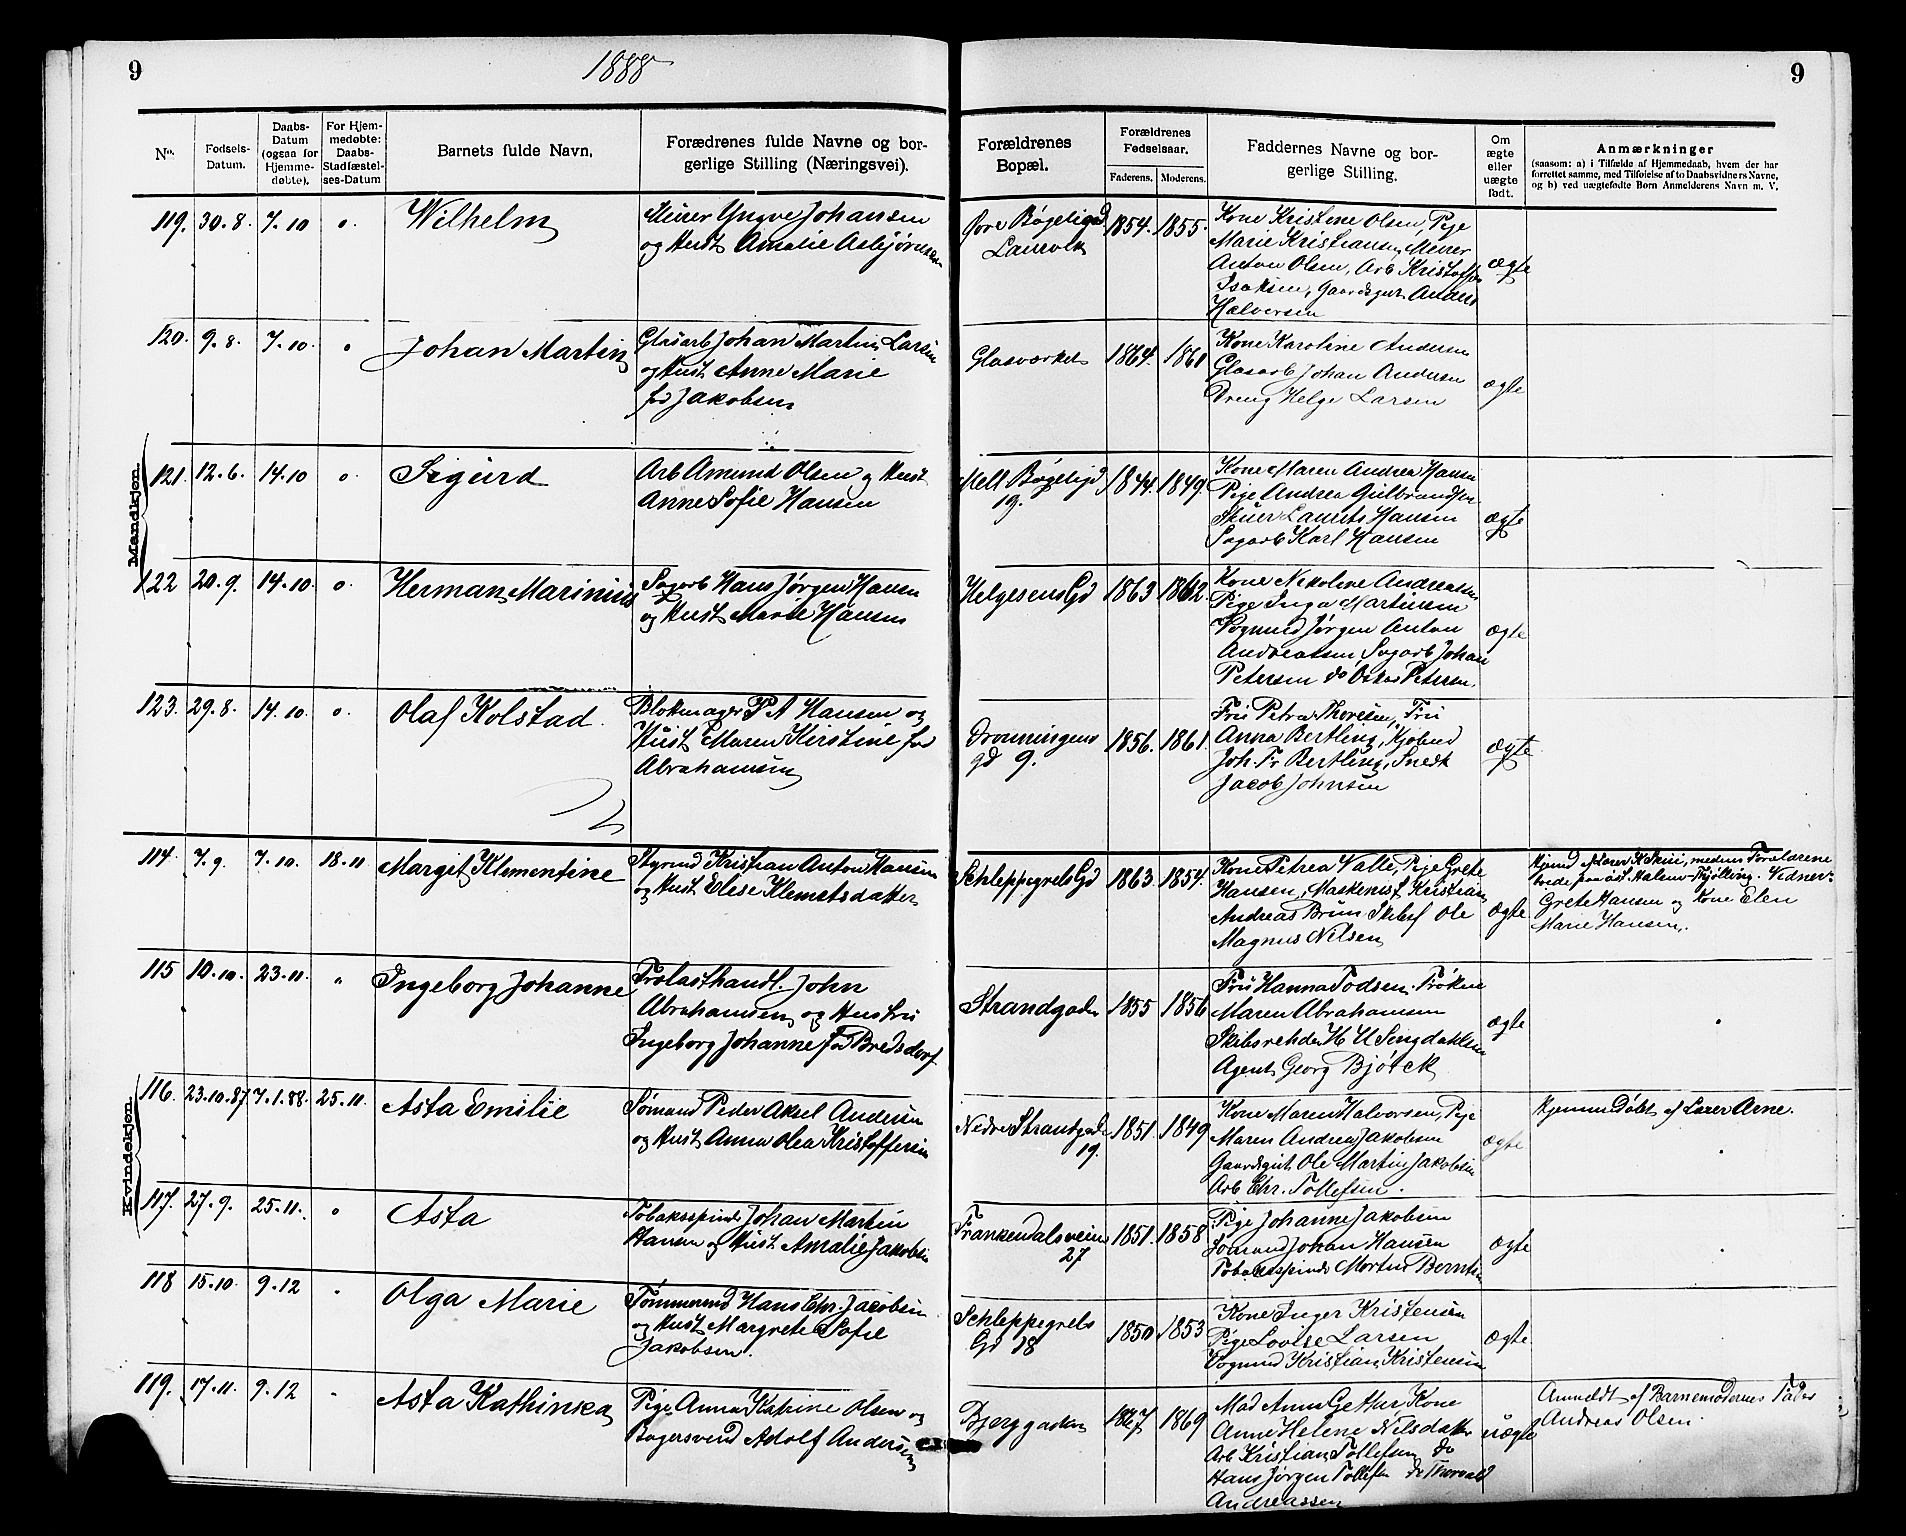 9
1888
9
No.
Fødsels-
Datum.
Daabs-
Datum
(ogsaa for
Hjemme-
døbte).
For Hjem-
medøbte:
Daabs-
Stadfæstel-
ses-Datum
Barnets fulde Navn.
Forædrenes fulde Navne og bor-
gerlige Stilling (Næringsvei).
Forældrenes
Bopæl.
Forældrenes
Fødselsaar.
Faderens. Moderens.
Faddernes Navne og bor-
gerlige Stilling.
Om
ægte
eller
uægte
født.
Anmærkninger
(saasom: a) i Tilfælde af Hjemmedaab, hvem der har
forrettet samme, med Tilføielse af to Daabsvidners Navne,
og b) ved uægtefødte Børn Anmelderens Navn m. V.
Mandkjøn.
119. 30.8. 7.10 " Wilhelm
Murer Yngve Johansen
og Hust Amalie Asbjørnsen
Øvre Bøgeligd
Laurvik
1854. 1855.
Kone Kristine Olsen, Pige
Marie Kristiansen, Murer
Anton Olsen, Arb Kristoffer
Isaksen, Gaardsgut Anders
Halvorsen
ægte
120. 9.8. 7.10. " Johan Martin
Glasarb Johan Martin Larsen
og Hust Anne Marie
fød Jakobsen
Glasværket 1864. 1861
Kone Karoline Andersen
Glasarb Johan Andersen
Dreng Helge Larsen
ægte
121. 12.6. 14.10 " Sigurd
Arb Amund Olsen og Hust
Anne Sofie Hansen
Mell Bøgeligd
19.
1844. 1849.
Kone Maren Andrea Hansen
Pige Andrea Gulbrandsen
Stuer Laurits Hansen
Sagarb Karl Hansen
ægte
122 20.9. 14.10. " Herman Marinius
Sagarb Hans Jørgen Hansen
og Hust Marie Hansen
Helgesens Gd 1863 1862.
Kone Nikoline Andreassen
Pige Inga Martinsen
Vognmd Jørgen Anton
Andreassen, Sagarb Johan
Petersen do Oskar Petersen
ægte
123. 29.8. 14.10. " Olaf Kolstad.
Blokmager P A Hansen og
Hust Maren Kirstine fød
Abrahamsen
Dronningens
gd 9.
1856. 1861.
Fru Petra Thoresen, Fru
Anna Bertling, Kjøbmd
Joh. Fr Bertling, Snedk
Jacob Johnsen
ægte
Kvindekjøn.
114. 7.9. 7.10. 18.11 Margit Klementine
Styrmd Kristian Anton Hansen
og Hust Elise Klemetsdatter
Schleppegrels Gd 1863. 1854.
Kone Petrea Valle, Pige Grete
Hansen, Maskinist Kristian
Andreas Brun Skibsf Ole
Magnus Nelsen
ægte
medens Forældrene
Vidner:
Grete Hansen og Kone Elen
Marie Hansen.
115 10.10. 23.11. " Ingeborg Johanne
Trælasthandl. John
Abrahamsen og Hustru
Ingeborg Johanne fød Bredsdorf
Strandgaden 1855 1856
Fru Hanna Todsen. Frøken
Maren Abrahamsen
Skibsrehder H U Sengdahlsen
Agent Georg Bjørck
ægte
116. 23.10.87 7.1.88. 25.11. Asta Emilie
Sømand Peder Aksel Andersen
og Hust Anna Olea Kristoffersen
Nedre Strandgade
19.
1851. 1849
Kone Maren Halvorsen, Pige
Maren Andrea Jakobsen
Gaardsgut Ole Martin Jakobsen
Arb Chr. Tollefsen.
ægte
Hjemme Døbt af Lærer Arne.
117. 27.9. 25.11. " Asta
Tobaksspinder Johan Martin
Hansen og Hust. Amalie Jakobsen
Frankendalsveien
27
1851. 1858
Pige Johanne Jakobsen
Sømand Johan Hansen
Tobaksspinder Morten Berntsen
ægte
118 15.10. 9.12 " Olga Marie
Tømmermd Hans Chr. Jacobsen
og Hust Margrete Sofie
Jakobsen.
Schleppegrels
Gd 18
1850 1853
Kone Inger Kristensen
Pige Lovise Larsen
Vognmd Kristian Kristensen
ægte.
119. 17.11. 9.12 " Asta Kathinka
Pige Anna Katrine Olsen og
Bagersvend Adolf Andersen
Bjerggaden 1867. 1869
Mad Anne Gether Kone
Anne Helene Nilsdatter
Arb Kristian Tollefsen do
Hans Jørgen Tollefsen do Thorvald
Andreassen
uægte
Anmeldt af Barnemoderens Fader
Andreas Olsen.